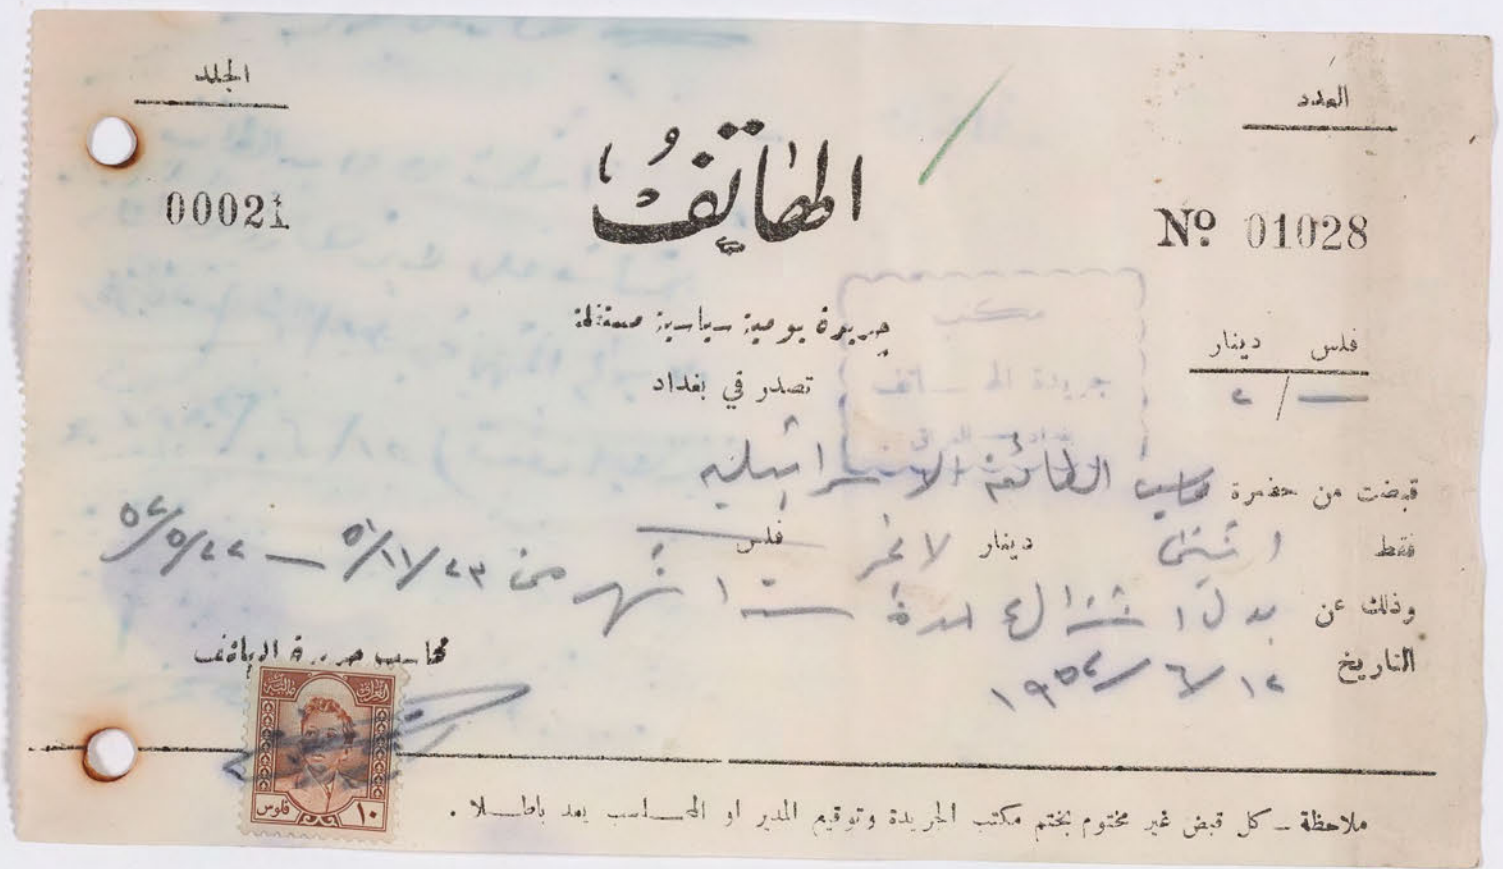 العدد
الجلد
الهاتف
00021
Nº 01028
جريدة يومية سياسية مستقلة
تصدر في بغداد
مكتب
جريدة الهـاتف
فلس دينار
— / ٢
قبضت من حضرة محاسب الطائفة الاسرائيلية
فقط اثنين دينار لا غير فلس —
وذلك عن بدل اشتراك لمدة ستة اشهر من ٢٣/١١/٥١ — ٢٢/٥/٥٢
التاريخ ١٢/٦/١٩٥٢
محاسب جريدة الهاتف
العراق
مالية
١٠ فلوس
ملاحظة ـ كل قبض غير مختوم بختم مكتب الجريدة وتوقيع المدير او المحـاسب يعد باطـلا .